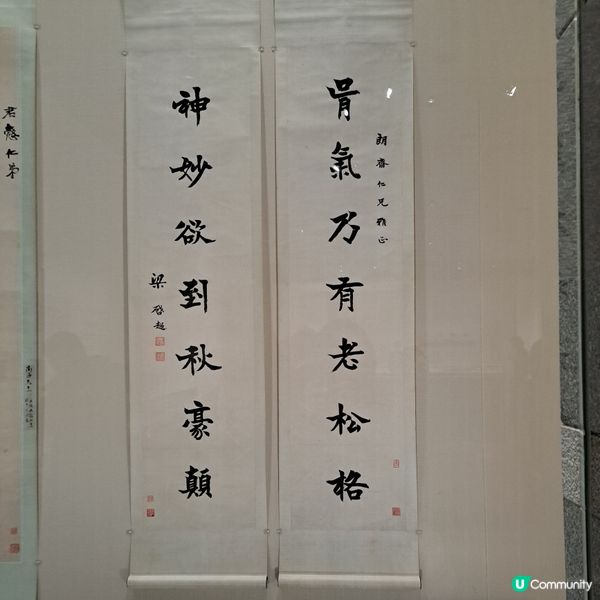 骨氣乃有老松格
朗齋仁兄雅正
神妙欲到秋豪顛
梁啓超
君仁弟
U Community